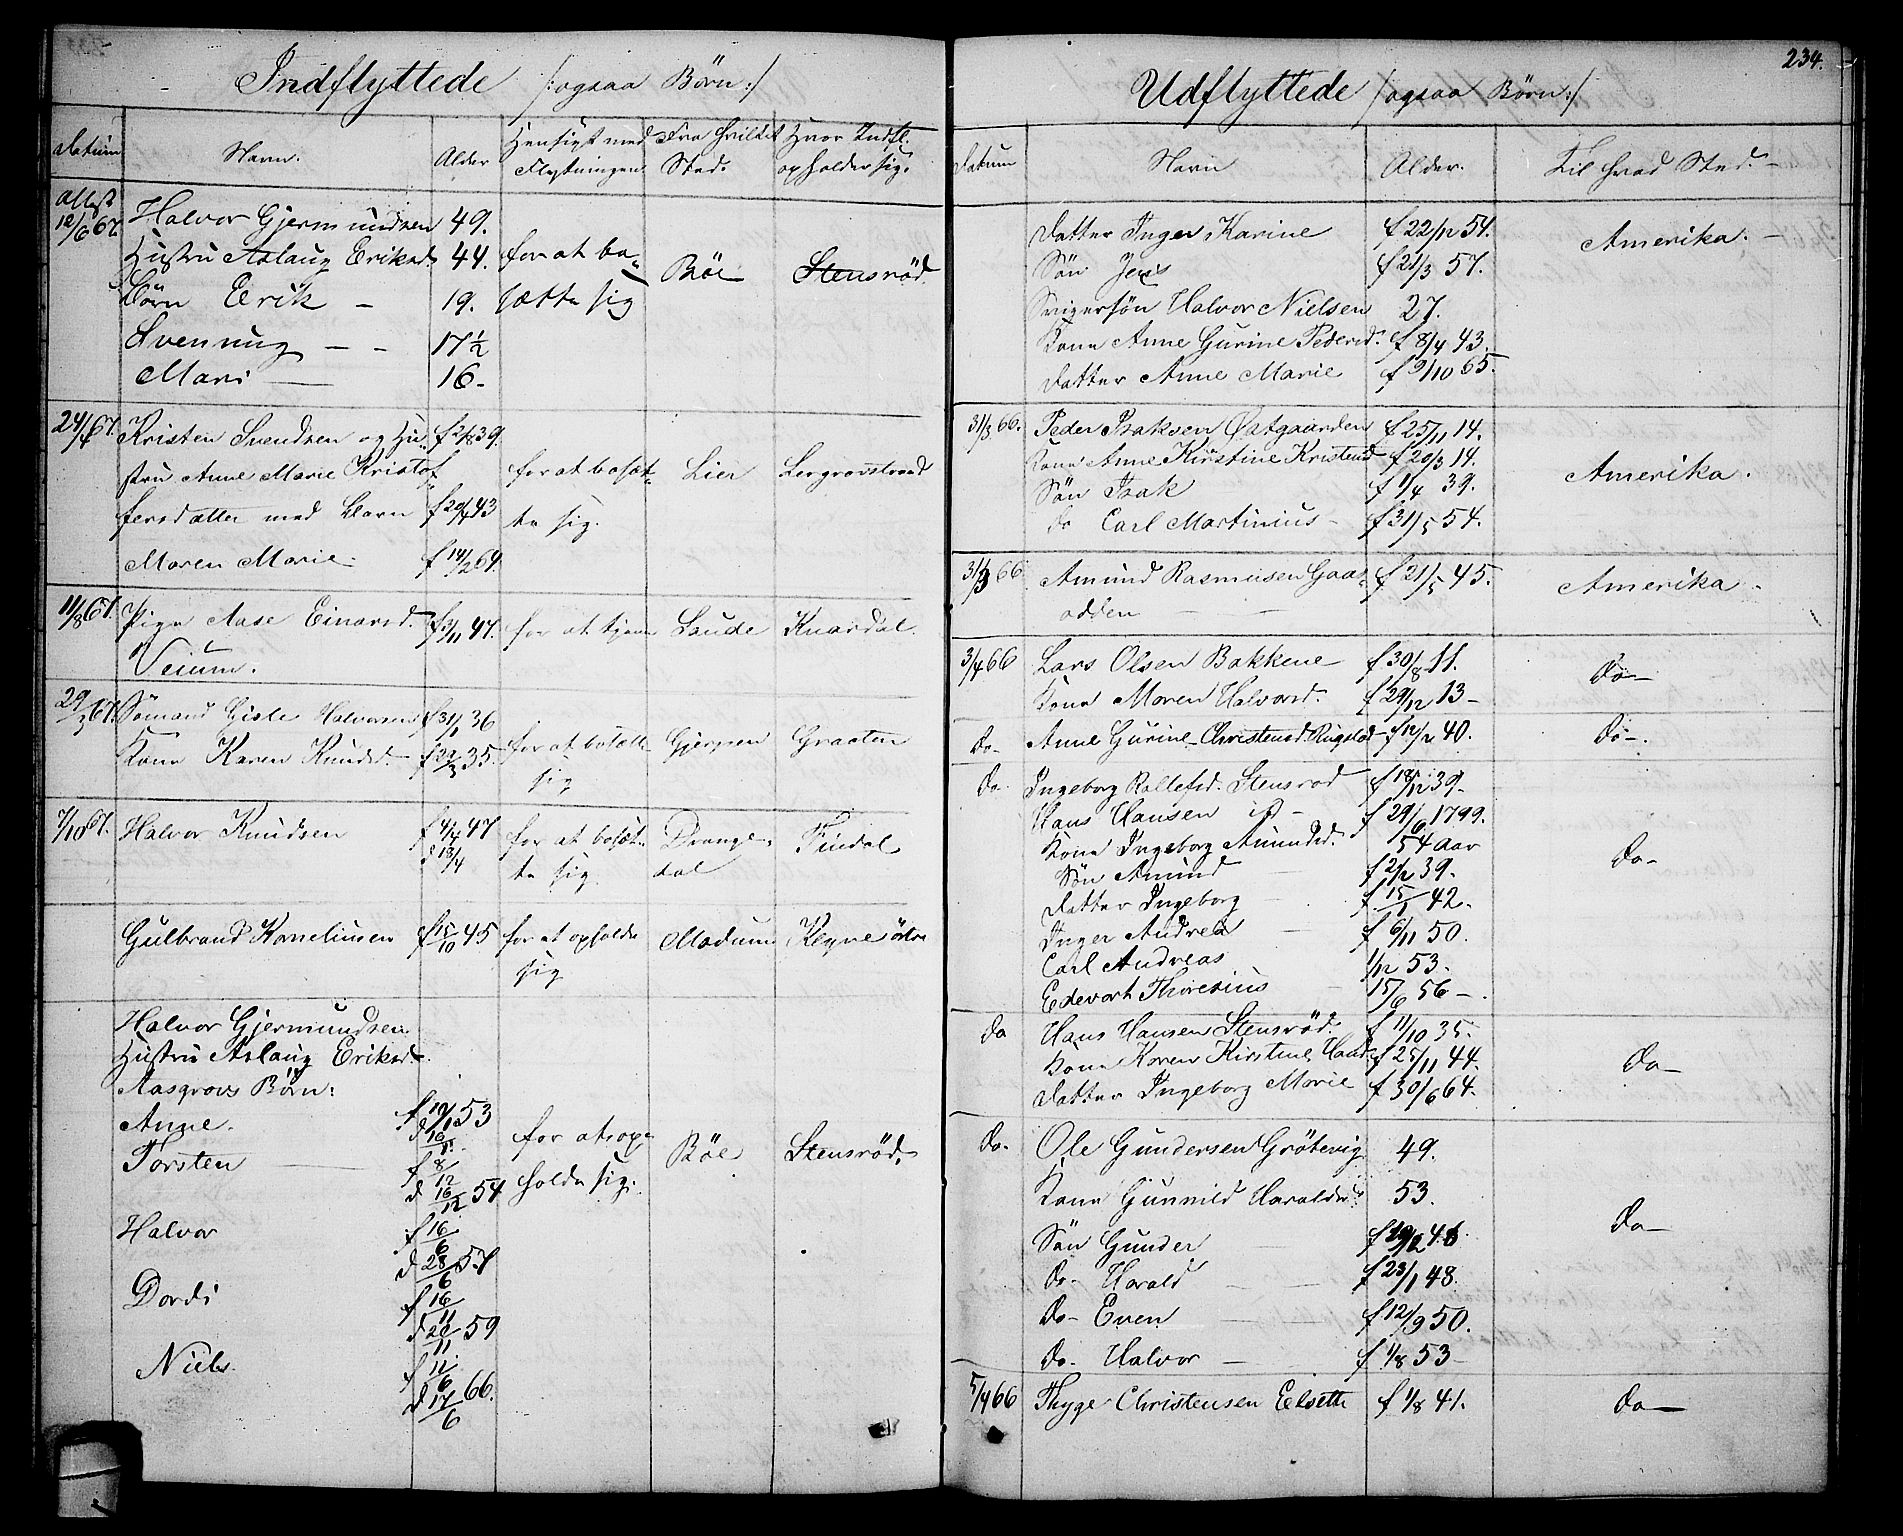 Indflyttede /:ogsaa Børn:/
Datum Navn. Alder Hensigt med Flytningen Fra hvilket Sted. Hvor Indfl. opholder sig.
Attest
12/6 67. Halvor Gjermundsen 49.
Hustru Aslaug Eriksd. 44. for at bo-
Børn Erik – 19. sætte sig Böe Stensröd
Svennug – – 17½
Mari – 16-
24/4 67. Kristen Svendsen og Hu- f 2/8 39.
stru Anne Marie Kristof- for at bosæt- Lier Lergravstrand
fersdatter med Barn f 20/4 43 te sig.
Maren Marie. f 14/2 64.
11/8 67. Pige Aase Einarsd. f 3/11 47. for at tjene Laude Knardal.
Veium.
29/3 67. Sömand Gisle Halvorsen f 31/1 36
Kone Karen Knudsd. – f 22/3 35. for at bosætte Gjerpen Graaten
sig
7/10 67. Halvor Knudsen f 4/4 47 for at bosæt- Drange- Findal
d 18/4 te sig. dal
Gulbrand Korneliusen f 15/10 45 for at opholde Modum Kleyne östre
sig
Halvor Gjermundsen
Hustru Aslaug Eriksd.
Aasgravs Børn:
Anne. f 10/1 53
d 16/1. for at op-
Torsten – f 8/12 holde sig. Böe Stensröd.
d 16/12 54
Halvor f 16/6
d 28/6 57
Dordi f 16/11
d 20/11 59
Niels. f 11/6
d 17/6 66.
234.
Udflyttede /:ogsaa Börn:/
Datum Navn Alder. Til hvad Sted. –
Datter Inger Karine f 22/12 54. Amerika. –
Sön Jens f 21/3 57.
Svigersön Halvor Nielsen 27.
Kone Anne Gurine Pedersd. f 8/4 43.
Datter Anne Marie f 9/10 65.
31/3 66. Peder Isaksen Östgaarden f 25/11 14.
Kone Anne Kirstine Kristensd f 20/3 14. Amerika.
Sön Isak f 1/4 39.
do Carl Martinius – f 31/5 54.
31/3 66 Amund Rasmusen Gaa- f 21/5 45. Amerika –
odden – –
3/4 66 Lars Olsen Bakkene f 30/8 11. do –
Kone Maren Halvorsd. f 29/12 13 –
do – Anne Gurine Christensd. Rugstad f 12/2 40. do –.
do – Ingeborg Rollefsd. Stensrod f 18/12 39 –
Hans Hansen id – f 29/6 1799.
Kone Ingeborg Amundsd. 54 Aar do –
Sön Amund f 2/2 39.
Datter Ingeborg – f 15/1 42.
Inger Andrea – f 6/11 50.
Carl Andreas 1/12 53.
Edevart Thoresius – 15/6 56 –.
do Hans Hansen Stensröd. f 11/10 35.
Kone Karen Kirstine Hansd f 25/11 44. do –
Datter Ingeborg Marie f 30/6 64.
do. Ole Gundersen Grötevig 49.
Kone Gunnild Haraldsd. 53. do –
Sön Gunder – 
do – Harald – f 23/1 48.
do – Even – f 12/9 50.
do. Halvor – f 1/8 53 –
5/4 66 Thyge Christensen Elseth f 1/8 41. do –